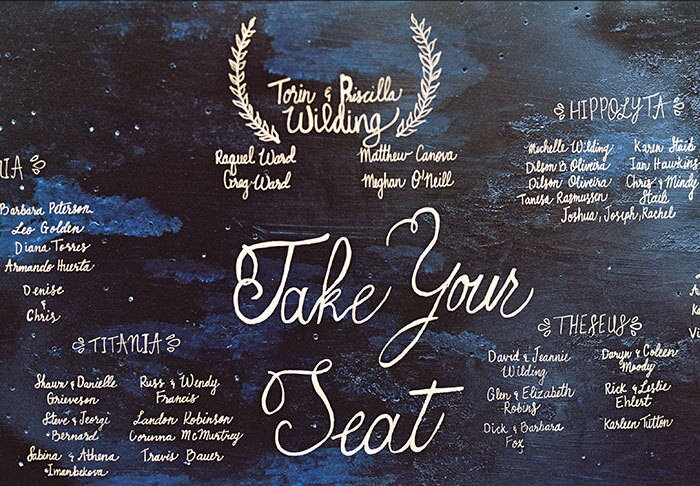 Torin & Priscilla
Wilding
Raquel Ward
Greg Ward
Matthew Canova
Meghan O'Neill
HIPPOLYTA
Michelle Wilding
Dilson B. Oliveira
Dilson Oliveira
Tanesa Rasmussen
Karen Staib
Ian Hawkins
Chris & Mindy
Staib
Joshua, Joseph, Rachel
Barbara Peterson
Leo Golden
Diana Torres
Armando Huerta
Denise
&
Chris
Take Your
Seat
TITANIA
Shawn & Danielle
Grieveson
Steve & Jeorgi
Bernard
Sabina & Athena
Imanbekova
Russ & Wendy
Francis
Landon Robinson
Corunna McMurtrey
Travis Bauer
THESEUS
David & Jeannie
Wilding
Glen & Elizabeth
Robins
Dick & Barbara
Fox
Daryn & Coleen
Moody
Rick & Leslie
Ehlert
Karleen Tutton